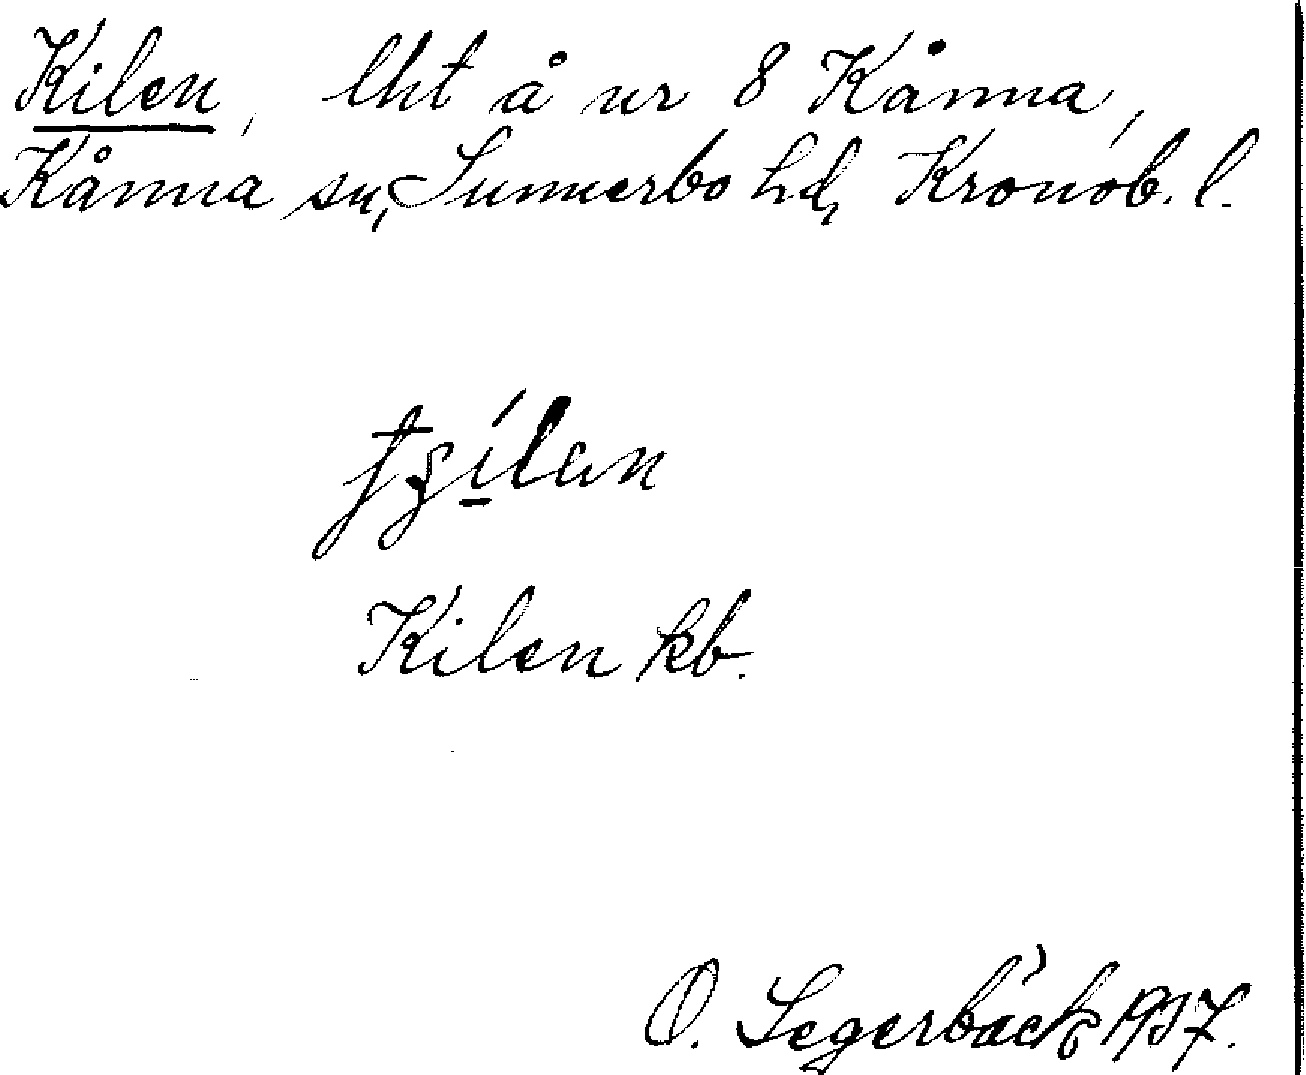 Kilen, lht å nr 8 Kånna,
Kånna sn, Sunnerbo hd, Kronob. l.
Kilen kb.
O. Segerbäck 1937.